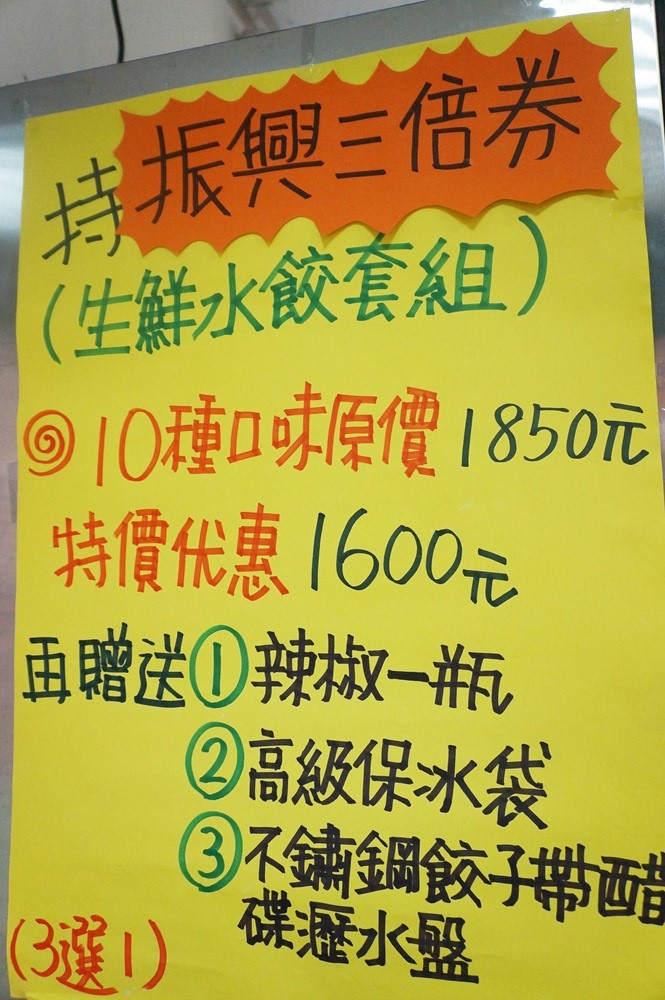 持振興三倍券
(生鮮水餃套組)
10種口味原價1850元
特價优惠1600元
再贈送①辣椒一瓶
②高級保冰袋
③不鏽鋼餃子帶醋
碟瀝水盤
(3選1)